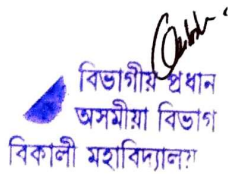 বিভাগীয় প্ৰধান
অসমীয়া বিভাগ
বিকালী মহাবিদ্যালয়